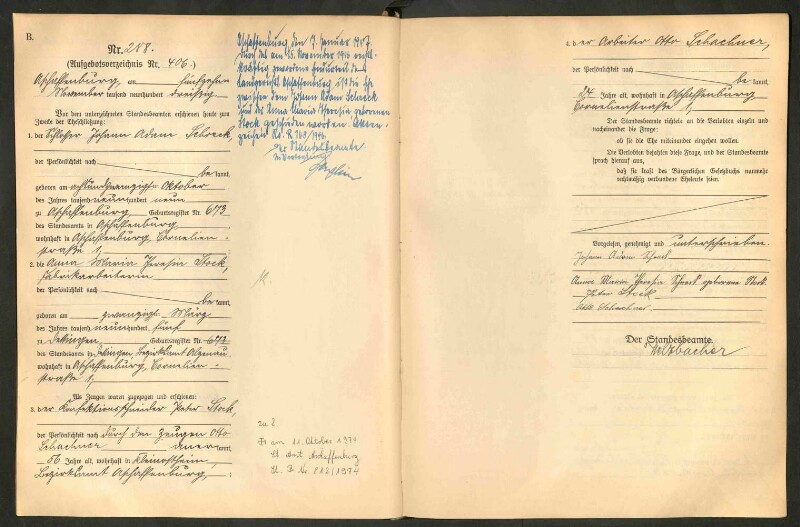 B.
Nr. 218.
(Aufgebotsverzeichnis Nr. 406.)
Aschaffenburg, am fünfzehn
November tausend neunhundert dreißig
Vor dem unterzeichneten Standesbeamten erschienen heute zum
Zwecke der Eheschließung:
1. der Schlosser Johann Adam Schreck,
der Persönlichkeit nach
be kannt,
geboren am achtundzwanzigsten Oktober
des Jahres tausend neunhundert neun
zu Aschaffenburg, Geburtsregister Nr. 673
des Standesamts in Aschaffenburg
wohnhaft in Aschaffenburg, Cornelien-
straße 1,
2. die Anna Maria Theresia Stock,
Fabrikarbeiterin
der Persönlichkeit nach
be kannt,
geboren am zwanzigsten März
des Jahres tausend neunhundert fünf
zu Dettingen, Geburtsregister Nr.
des Standesamts in Dettingen Bezirksamt Alzenau,
wohnhaft in Aschaffenburg, Cornelien-
straße 1,
Als Zeugen waren zugezogen und erschienen:
3. der Konfektionsschneider Peter Stock,
der Persönlichkeit nach durch den Zeugen Otto
Schachner anerkannt,
56 Jahre alt, wohnhaft in Kleinostheim,
Bezirksamt Aschaffenburg,
Aschaffenburg, den 7. Januar 1947.
Durch das am 15. November 1946 rechts-
kräftig gewordene Endurteil des
Landgerichts Aschaffenburg ist die Ehe
zwischen dem Johann Adam Schreck
und der Anna Maria Theresia geborenen
Stock geschieden worden. Akten-
zeichen R. 268/1946.
Der Standesbeamte
In Vertretung
zu 2
am 11. Oktober 1974
St. Amt Aschaffenburg
St. B. Nr. 812/1974
4. der Arbeiter Otto Schachner,
der Persönlichkeit nach
be kannt,
24 Jahre alt, wohnhaft in Aschaffenburg
Cornelienstraße 1,
Der Standesbeamte richtete an die Verlobten einzeln und
nacheinander die Frage:
ob sie die Ehe miteinander eingehen wollen.
Die Verlobten bejahten diese Frage, und der Standesbeamte
sprach hierauf aus,
daß sie kraft des Bürgerlichen Gesetzbuchs nunmehr
rechtmäßig verbundene Eheleute seien.
Vorgelesen, genehmigt und unterschrieben.
Johann Adam Schreck
Anna Maria Theresia Schreck geborene Stock.
Peter Stock
Otto Schachner
Der Standesbeamte.